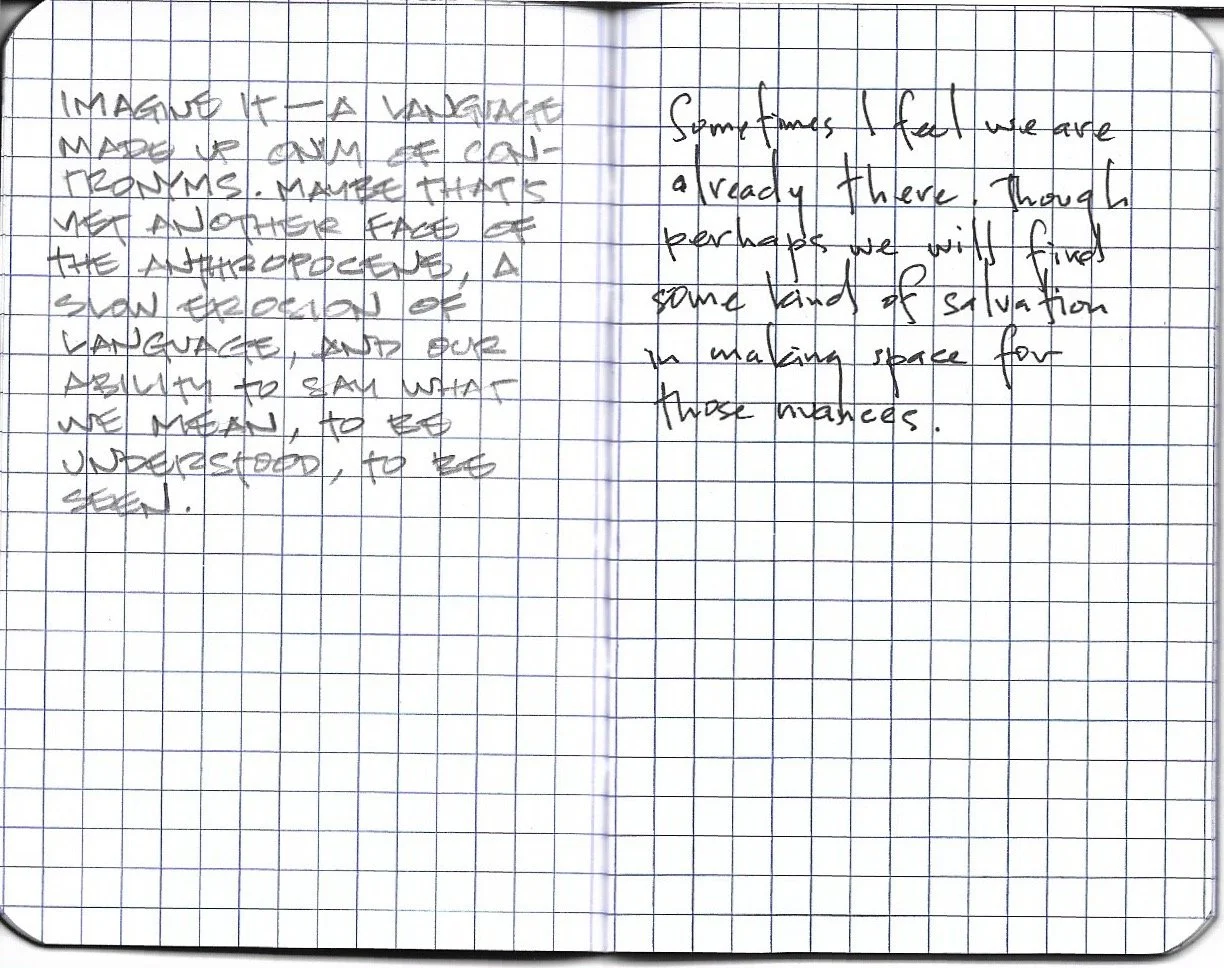 IMAGINE IT — A LANGUAGE
MADE UP ONLY OF CON-
TRONYMS. MAYBE THAT'S
YET ANOTHER FACE OF
THE ANTHROPOCENE, A
SLOW EROSION OF
LANGUAGE, AND OUR
ABILITY TO SAY WHAT
WE MEAN, TO BE
UNDERSTOOD, TO BE
SEEN.
Sometimes I feel we are
already there. Though
perhaps we will find
some kind of salvation
in making space for
those nuances.